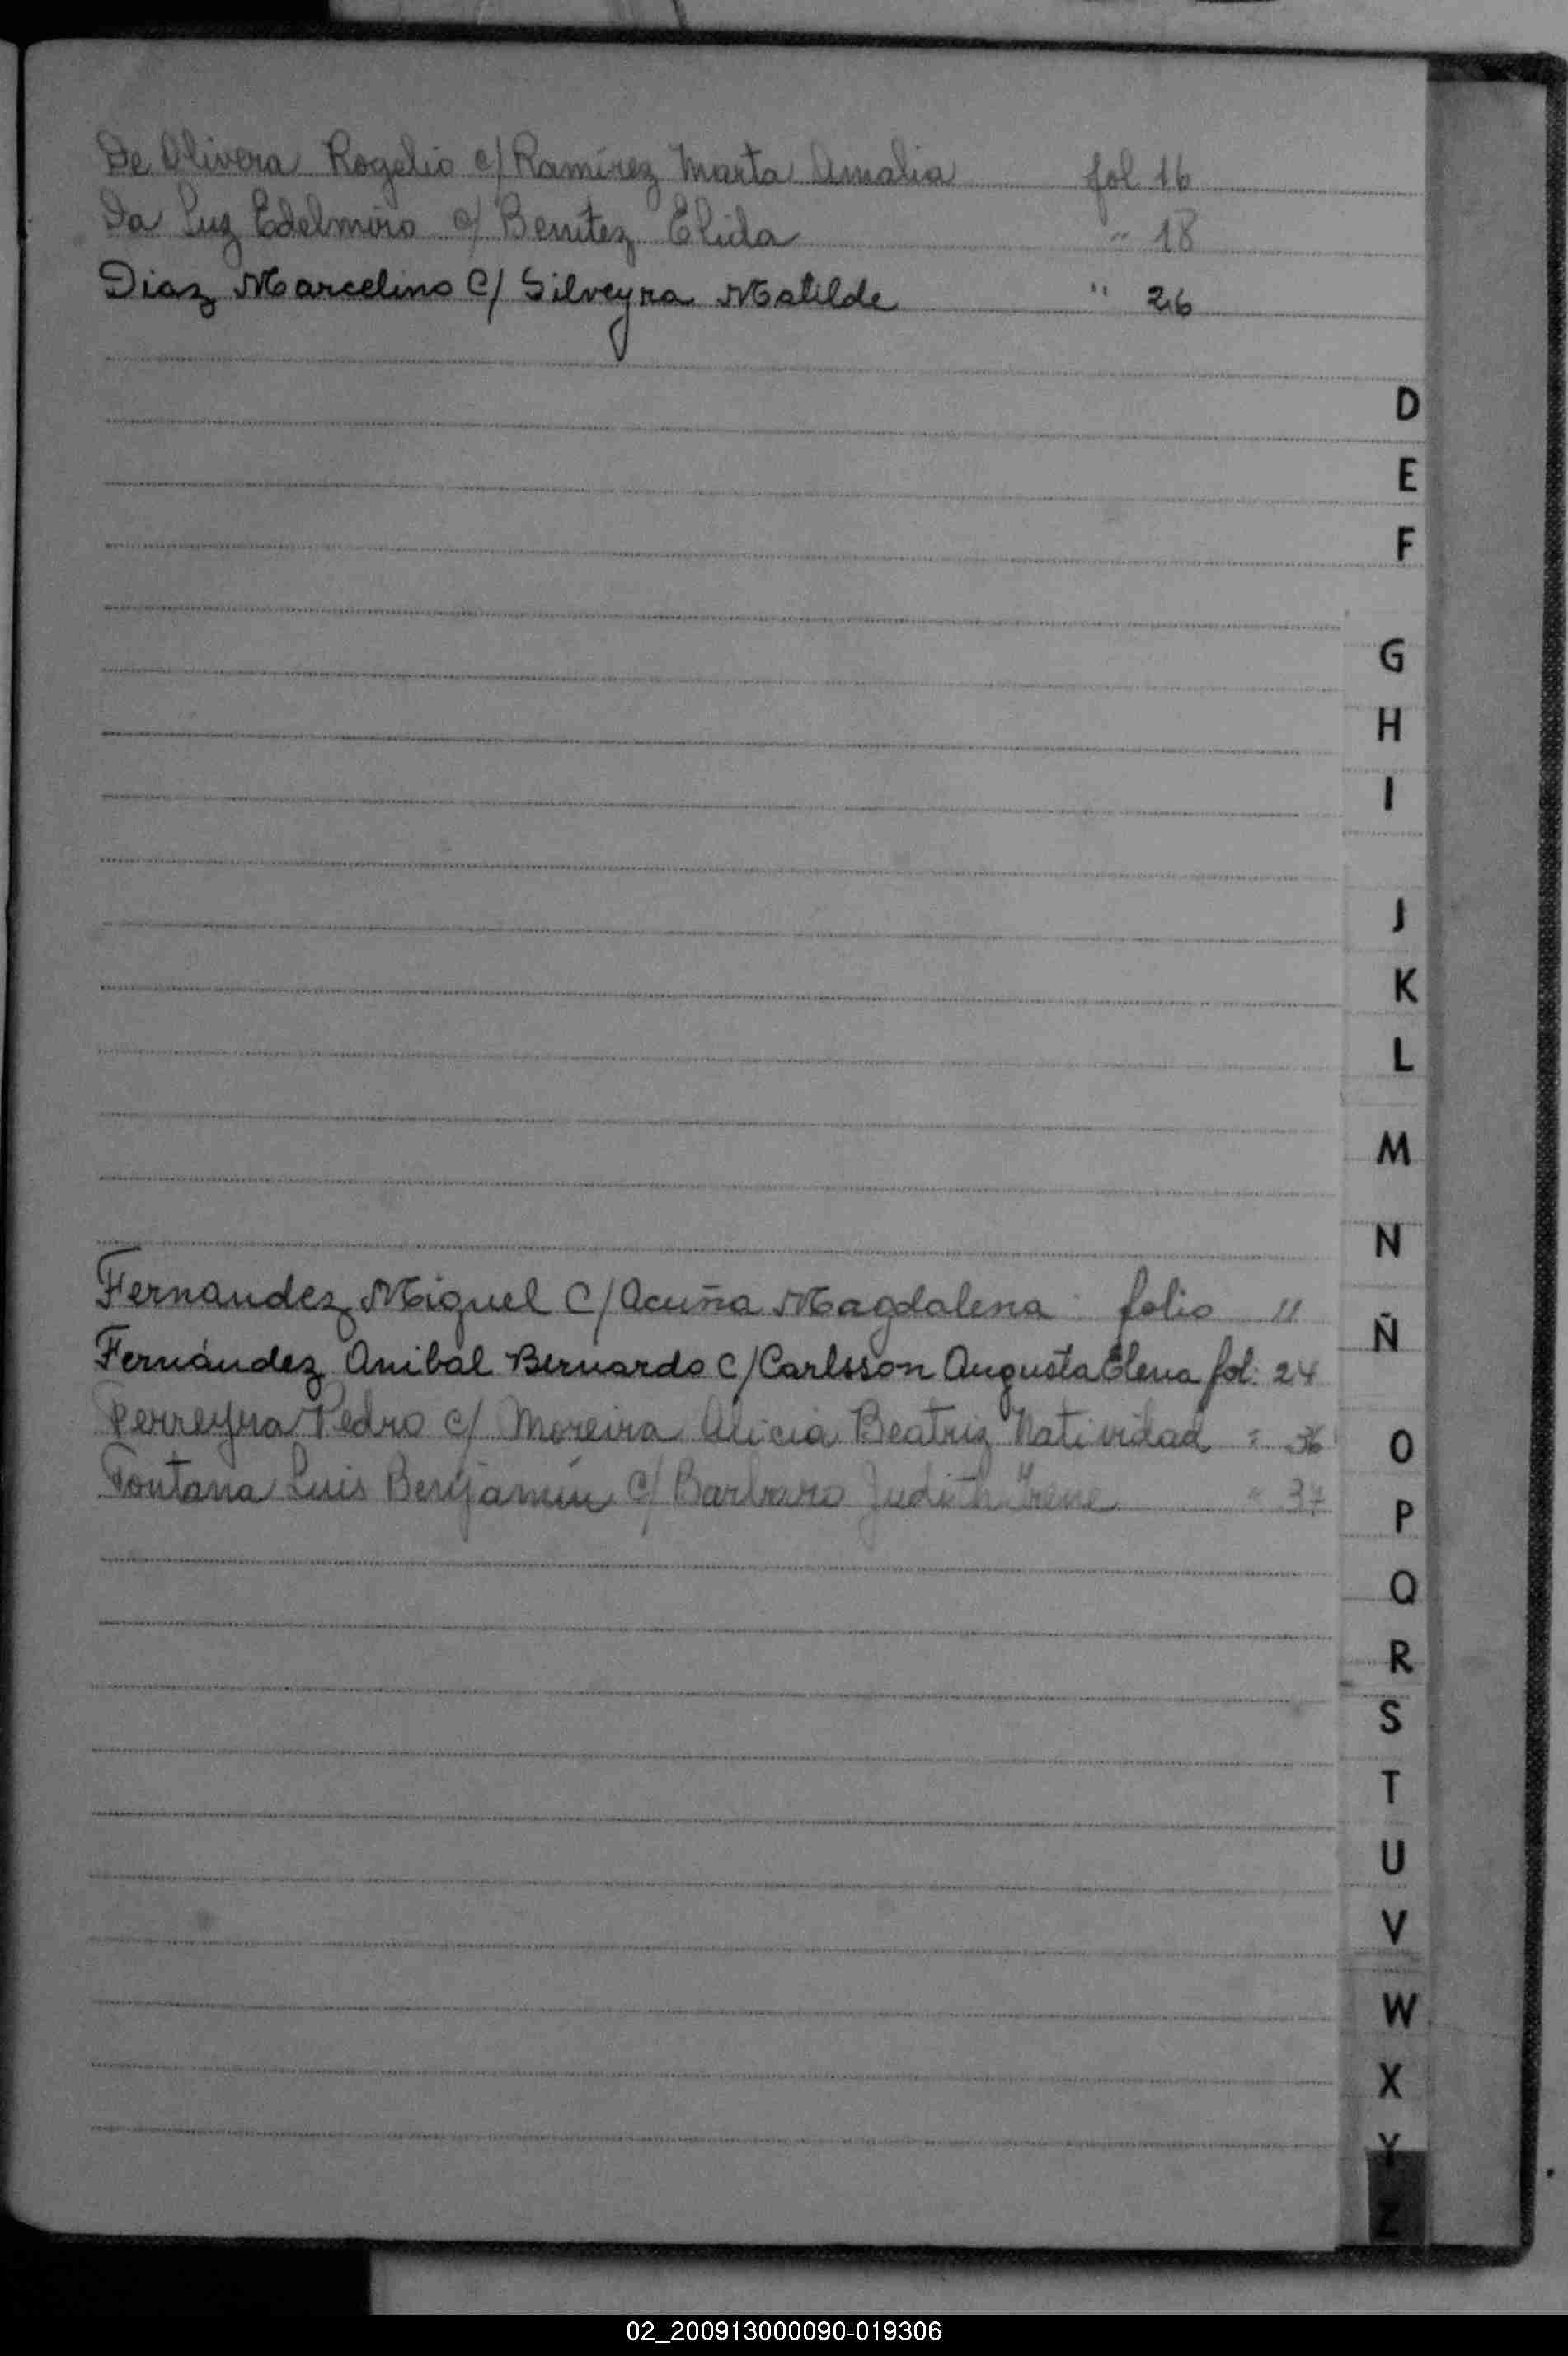 De Olivera Rogelio c/ Ramírez Marta Amalia fol 16
Da Luz Edelmiro c/ Benitez Elida " 18
Diaz Marcelino C/ Silveyra Matilde " 26
D
E
F
G
H
I
J
K
L
M
N
Fernandez Miguel C/ Acuña Magdalena folio 11
Ñ
Fernández Anibal Bernardo C/ Carlsson Augusta Elena fol: 24
Ferreyra Pedro c/ Moreira Alicia Beatriz Natividad " 36
O
Fontana Luis Benjamín c/ Barbaro Judith Irene " 37
P
Q
R
S
T
U
V
W
X
Y
Z
02_200913000090-019306